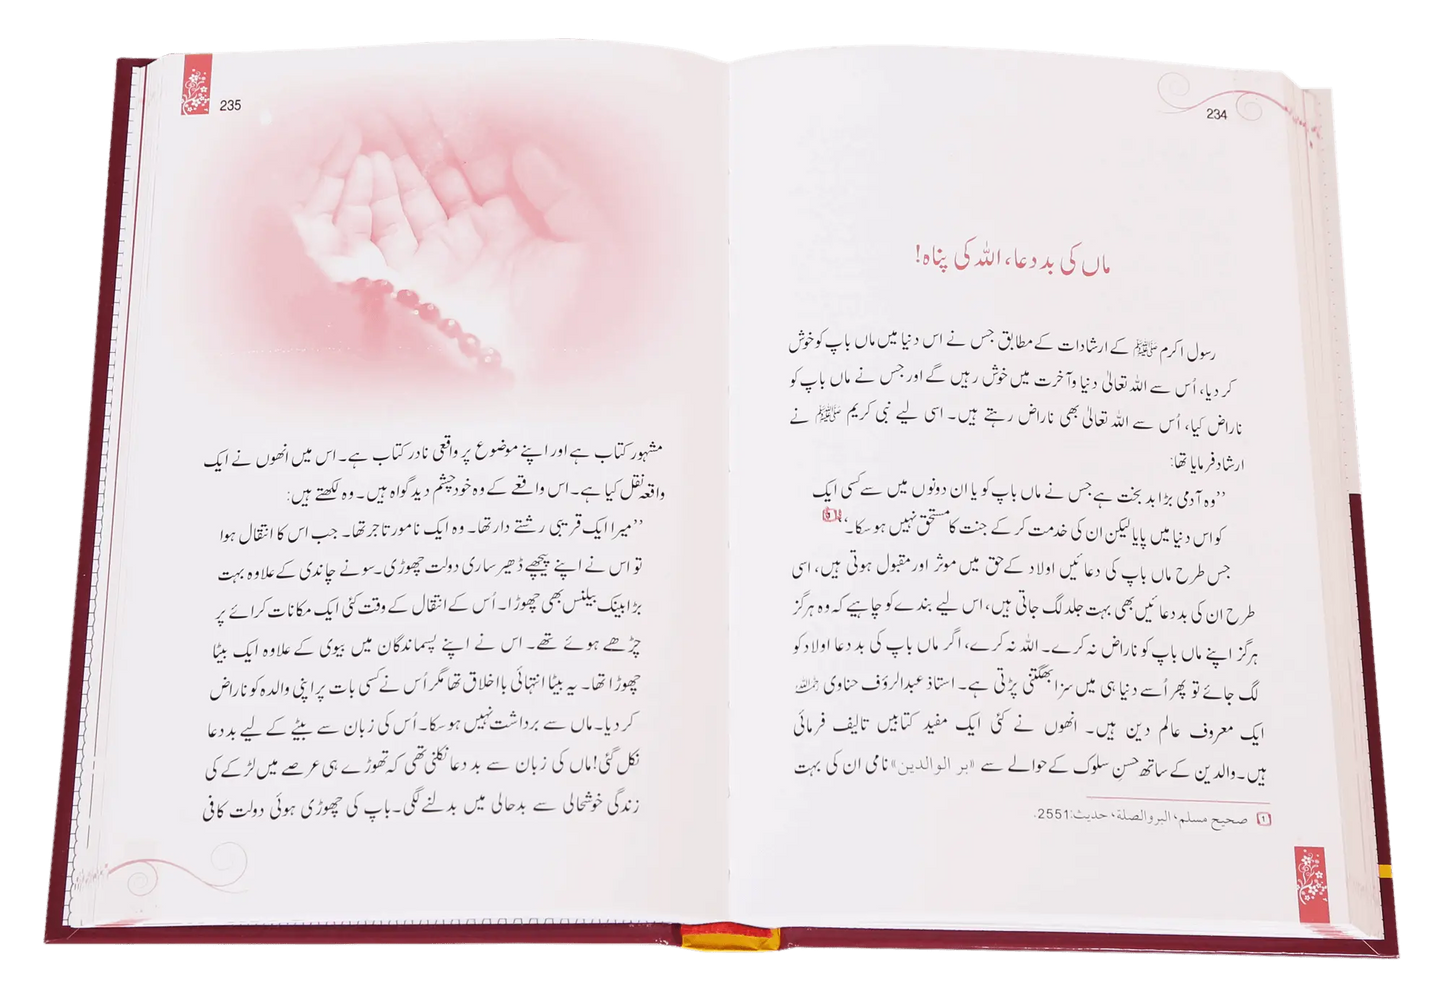 234
ماں کی بد دعا، اللہ کی پناہ!
رسول اکرم ﷺ کے ارشادات کے مطابق جس نے اس دنیا میں ماں باپ کو خوش
کر دیا، اُس سے اللہ تعالیٰ دنیا و آخرت میں خوش رہیں گے اور جس نے ماں باپ کو
ناراض کیا، اُس سے اللہ تعالیٰ بھی ناراض رہتے ہیں۔ اسی لیے نبی کریم ﷺ نے
ارشاد فرمایا تھا:
’’وہ آدمی بڑا بد بخت ہے جس نے ماں باپ کو یا ان دونوں میں سے کسی ایک
کو اس دنیا میں پایا لیکن ان کی خدمت کر کے جنت کا مستحق نہیں ہو سکا۔‘‘
جس طرح ماں باپ کی دعائیں اولاد کے حق میں موثر اور مقبول ہوتی ہیں، اسی
طرح ان کی بد دعائیں بھی بہت جلد لگ جاتی ہیں، اس لیے بندے کو چاہیے کہ وہ ہرگز
ہرگز اپنے ماں باپ کو ناراض نہ کرے۔ اللہ نہ کرے، اگر ماں باپ کی بد دعا اولاد کو
لگ جائے تو پھر اُسے دنیا ہی میں سزا بھگتنی پڑتی ہے۔ استاذ عبدالرؤف حناوی رحمہ اللہ
ایک معروف عالم دین ہیں۔ انھوں نے کئی ایک مفید کتابیں تالیف فرمائی
ہیں۔ والدین کے ساتھ حسنِ سلوک کے حوالے سے «بر الوالدین» نامی ان کی بہت
۱ صحیح مسلم، البر والصلة، حدیث: 2551.
235
مشہور کتاب ہے اور اپنے موضوع پر واقعی نادر کتاب ہے۔ اس میں انھوں نے ایک
واقعہ نقل کیا ہے۔ اس واقعے کے وہ خود چشم دید گواہ ہیں۔ وہ لکھتے ہیں:
’’میرا ایک قریبی رشتے دار تھا۔ وہ ایک نامور تاجر تھا۔ جب اس کا انتقال ہوا
تو اس نے اپنے پیچھے ڈھیر ساری دولت چھوڑی۔ سونے چاندی کے علاوہ بہت
بڑا بینک بیلنس بھی چھوڑا۔ اُس کے انتقال کے وقت کئی ایک مکانات کرائے پر
چڑھے ہوئے تھے۔ اس نے اپنے پسماندگان میں بیوی کے علاوہ ایک بیٹا
چھوڑا تھا۔ یہ بیٹا انتہائی با اخلاق تھا مگر اُس نے کسی بات پر اپنی والدہ کو ناراض
کر دیا۔ ماں سے برداشت نہیں ہو سکا۔ اُس کی زبان سے بیٹے کے لیے بد دعا
نکل گئی! ماں کی زبان سے بد دعا نکلنی تھی کہ تھوڑے ہی عرصے میں لڑکے کی
زندگی خوشحالی سے بدحالی میں بدلنے لگی۔ باپ کی چھوڑی ہوئی دولت کافی